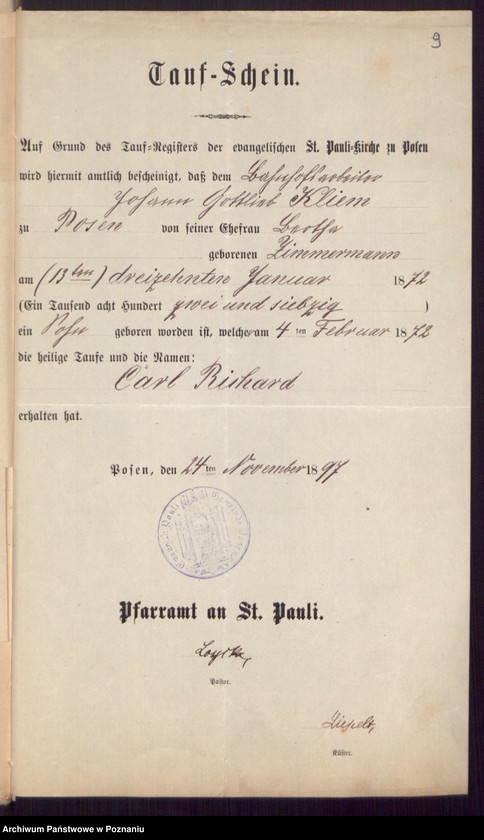 9
Tauf-Schein.
Auf Grund des Tauf-Registers der evangelischen St. Pauli-Kirche zu Posen
wird hiermit amtlich bescheinigt, daß dem Bahnhofsarbeiter
Johann Gottlieb Kliem
zu Posen von seiner Ehefrau Bertha
geborenen Zimmermann
am (13ten) dreizehnten Januar 1872
(Ein Tausend acht Hundert zwei und siebzig)
ein Sohn geboren worden ist, welcher am 4 ten Februar 1872
die heilige Taufe und die Namen:
Carl Richard
erhalten hat.
Posen, den 24 ten November 1897
Pfarramt an St. Pauli.
Pastor.
Küster.
Archiwum Państwowe w Poznaniu